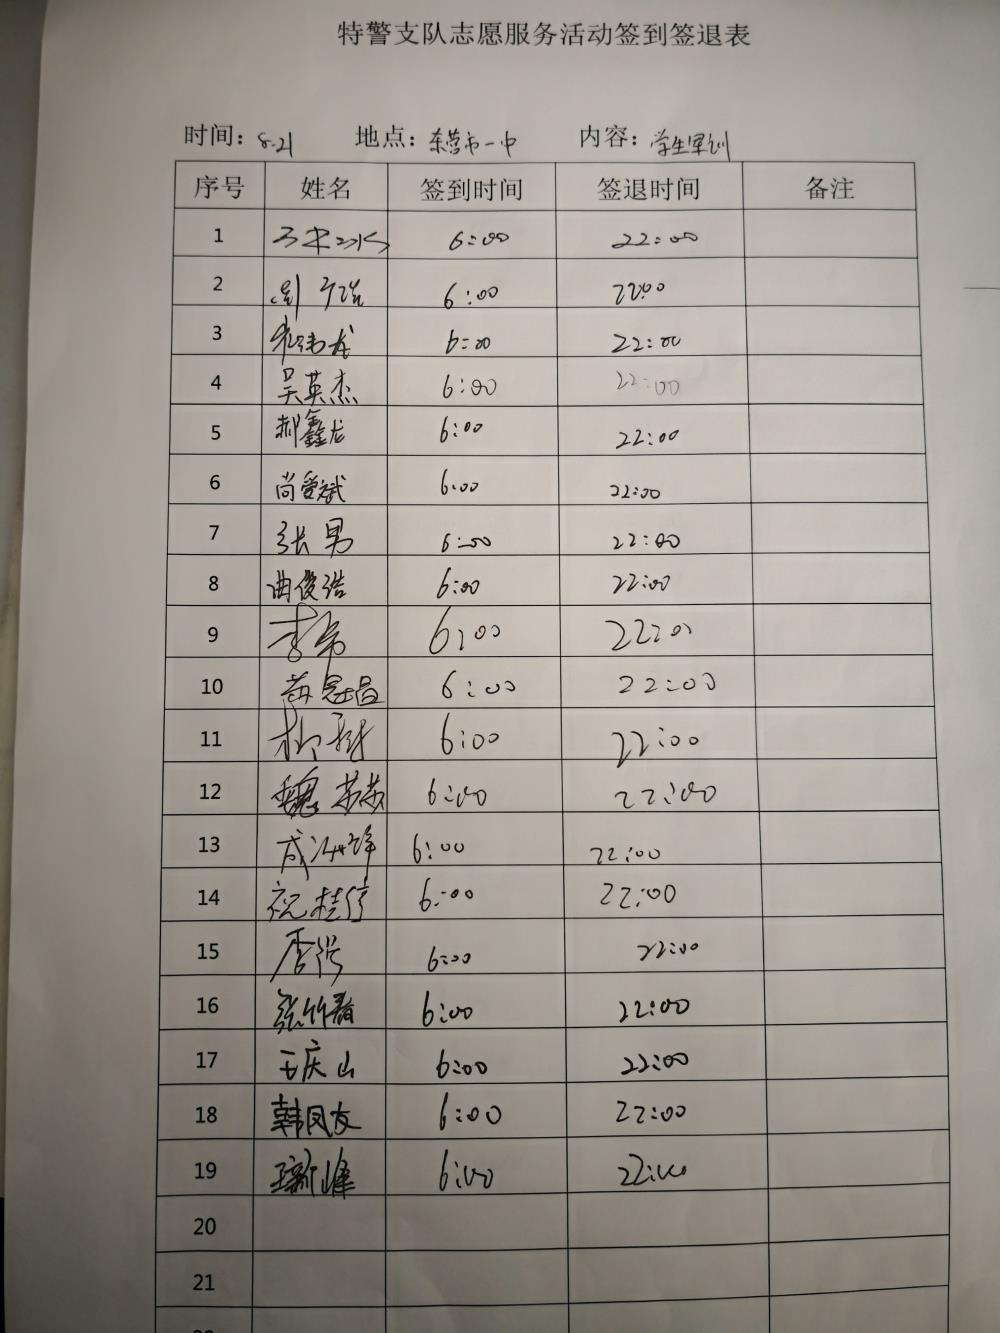 特警支队志愿服务活动签到签退表
时间：8.21 地点：东营市一中 内容：学生军训
序号 姓名 签到时间 签退时间 备注
1 6:00 22:00
2 6:00 22:00
3 6:00 22:00
4 吴英杰 6:00 22:00
5 郝鑫龙 6:00 22:00
6 尚爱斌 6:00 22:00
7 张男 6:00 22:00
8 曲俊浩 6:00 22:00
9 李 6:00 22:00
10 6:00 22:00
11 柳 6:00 22:00
12 魏苏苏 6:00 22:00
13 成海峰 6:00 22:00
14 祝桂 6:00 22:00
15 6:00 22:00
16 张竹青 6:00 22:00
17 王庆山 6:00 22:00
18 韩凤友 6:00 22:00
19 王新峰 6:00 22:00
20
21